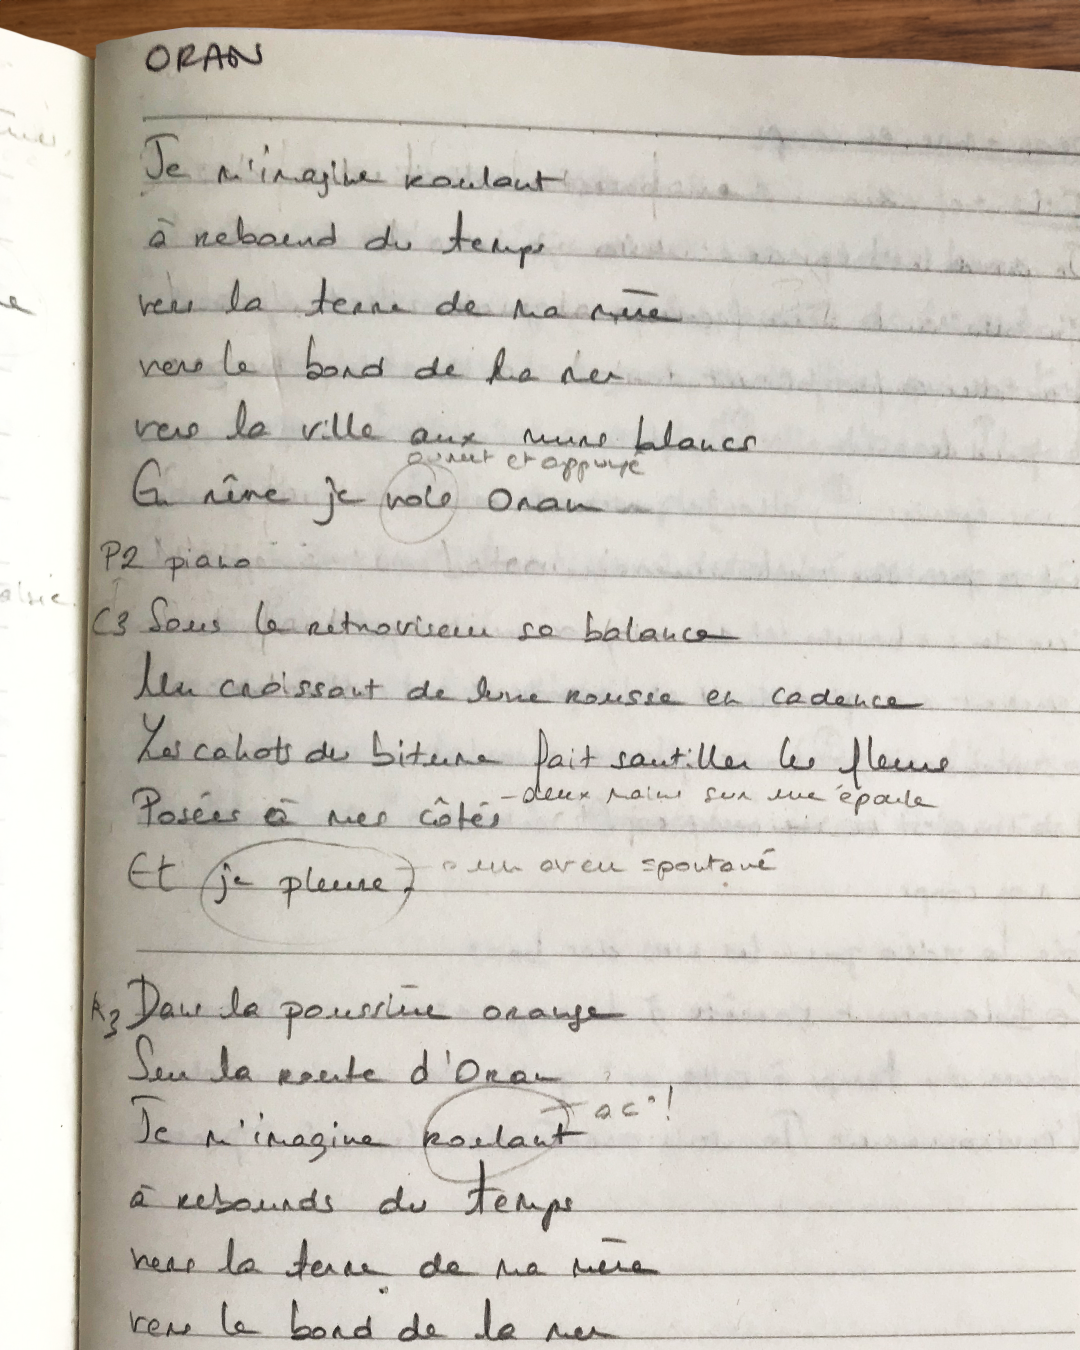 ORAN
Je m'imagine roulant
à rebound du temps
vers la terre de ma mère
vers le bord de la mer
vers la ville aux murs blancs
ouvert et appuyé
En rêve je vole Oran
P2 piano
C3 Sous le rétroviseur se balance
Un croissant de lune rousse en cadence
Les cahots du bitume fait sautiller les fleurs
- deux mains sur une épaule
Posées à mes côtés
un aveu spontané
Et je pleure,
A3 Dans la poussière orange
Sur la route d'Oran
ac !
Je m'imagine roulant
à rebounds du temps
vers la terre de ma mère
vers le bord de la mer